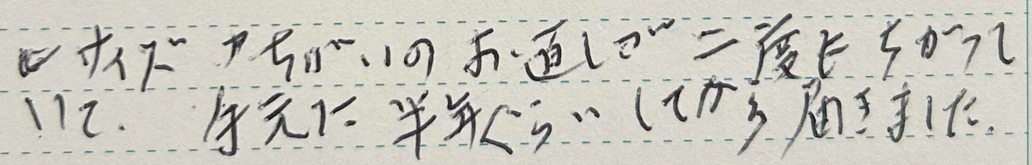 サイズちがいのお直しで二度もちがって
いて、手元に半年ぐらいしてから届きました。